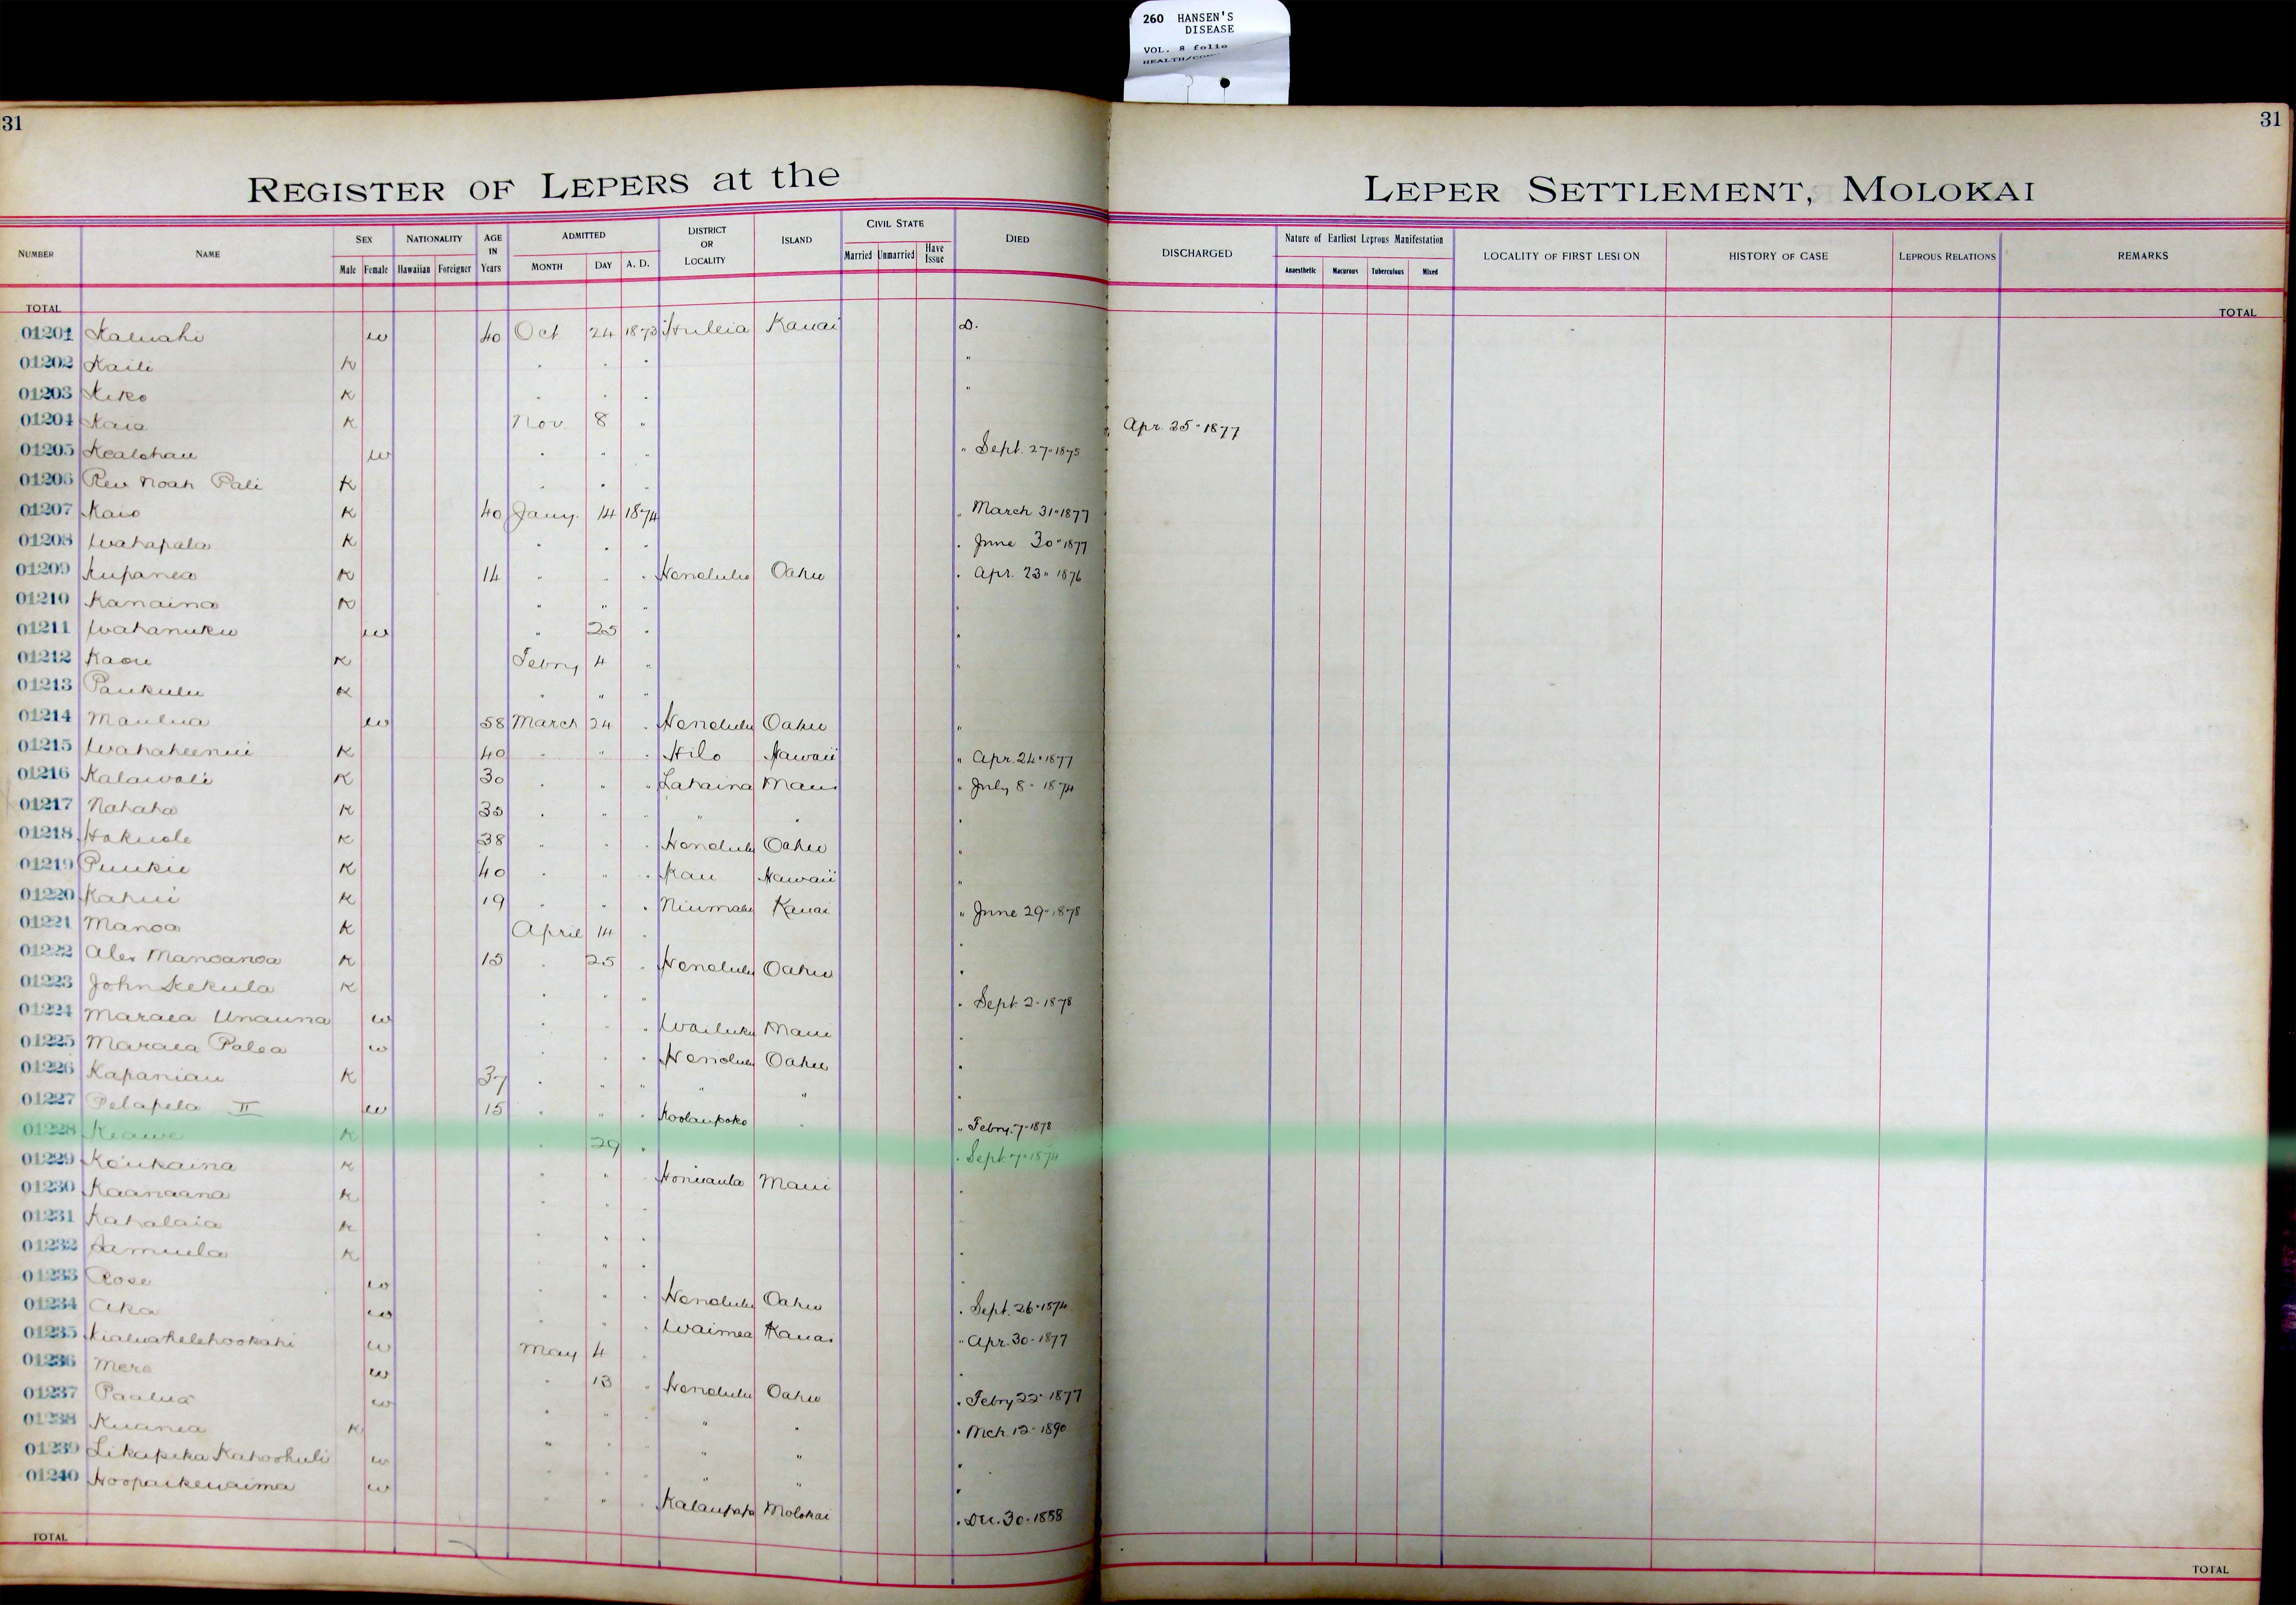 260 HANSEN'S
DISEASE
VOL. 8 folio
31
31
REGISTER OF LEPERS at the LEPER SETTLEMENT, MOLOKAI
NUMBER NAME SEX Male Female NATIONALITY Hawaiian Foreigner AGE IN Years ADMITTED MONTH DAY A. D. DISTRICT OR LOCALITY ISLAND CIVIL STATE Married Unmarried Have Issue DIED DISCHARGED Nature of Earliest Leprous Manifestation Anaesthetic Macurous Tuberculous Mixed LOCALITY OF FIRST LESION HISTORY OF CASE LEPROUS RELATIONS REMARKS
TOTAL TOTAL
01201 Kaluahi w 40 Oct 24 1873 Huleia Kauai D.
01202 Kaili K " " " "
01203 Kiko K " " " "
01204 Kaia K Nov. 8 " Apr. 25" 1877
01205 Kealohau w " " " " Sept. 27" 1875
01206 Rev Noah Pali K " " "
01207 Kaio K 40 Jany. 14 1874 " March 31" 1877
01208 Wahapala K " " " " June 30" 1877
01209 Kupanea K 14 " " " Honolulu Oahu " Apr. 23" 1876
01210 Kanaina K " " " "
01211 Wahanuku w " 25 " "
01212 Kaou K Febry 4 " "
01213 Paukulu K " " "
01214 Maulua w 58 March 24 " Honolulu Oahu "
01215 Wahaheenui K 40 " " " Hilo Hawaii " Apr. 24" 1877
01216 Kalawali K 30 " " " Lahaina Maui " July 8" 1874
01217 Nahaha K 35 " " " " " "
01218 Hokuole K 38 " " " Honolulu Oahu "
01219 Puukie K 40 " " " Kau Hawaii "
01220 Kahui K 19 " " " Niumalu Kauai " June 29" 1878
01221 Manoa K April 14 " "
01222 Alex Manoanoa K 15 " 25 " Honolulu Oahu "
01223 John Kekula K " " " " Sept. 2" 1878
01224 Maraea Unauna w " " " Wailuku Maui "
01225 Maraea Palea w " " " Honolulu Oahu "
01226 Kapaniau K 37 " " " " " "
01227 Pelapela II w 15 " " " Koolaupoko " " Febry. 7" 1878
01228 Keawe K " 29 " " Sept. 7" 1874
01229 Koukaina K " " " Honuaula Maui "
01230 Kaanaana K " " "
01231 Kahalaia K " " "
01232 Samuela K " " "
01233 Rose w " " " Honolulu Oahu " Sept. 26" 1874
01234 Aka w " " " Waimea Kauai " Apr. 30" 1877
01235 w May 4 " "
01236 Mere w " 13 " Honolulu Oahu " Febry 22" 1877
01237 Paalua w " " " " " " Mch. 12" 1890
01238 Kuanea K " " " " " "
01239 Likapeka Kahoohuli w " " " " " "
01240 Hoopaikewaima w " " " Kalaupapa Molokai " Dec. 30" 1888
TOTAL TOTAL